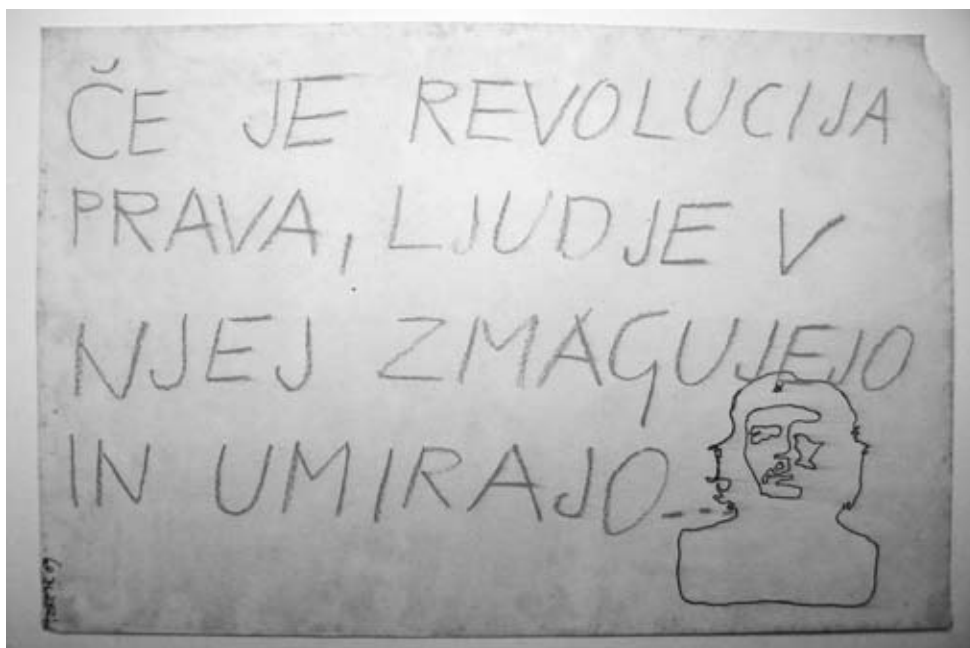 ČE JE REVOLUCIJA
PRAVA, LJUDJE V
NJEJ ZMAGUJEJO
IN UMIRAJO---